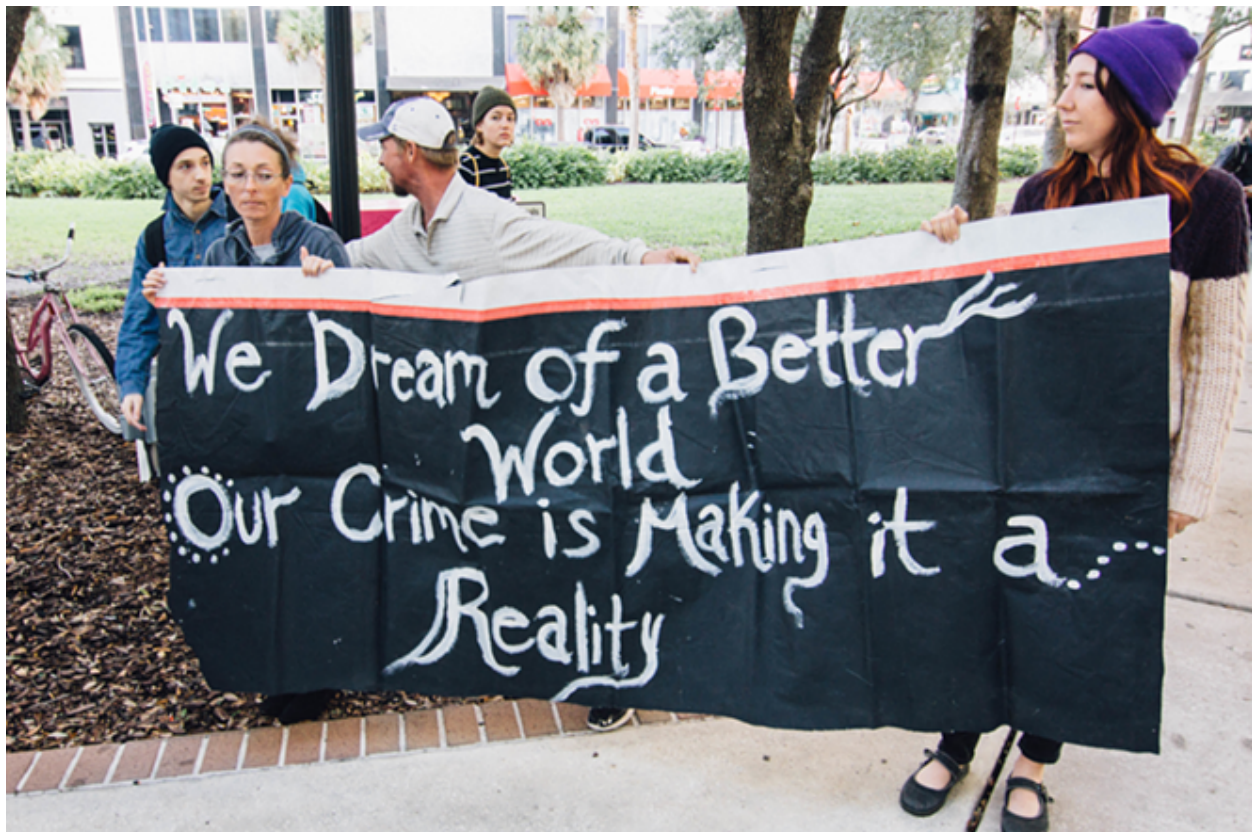 We Dream of a Better
World
Our Crime is Making it a
Reality